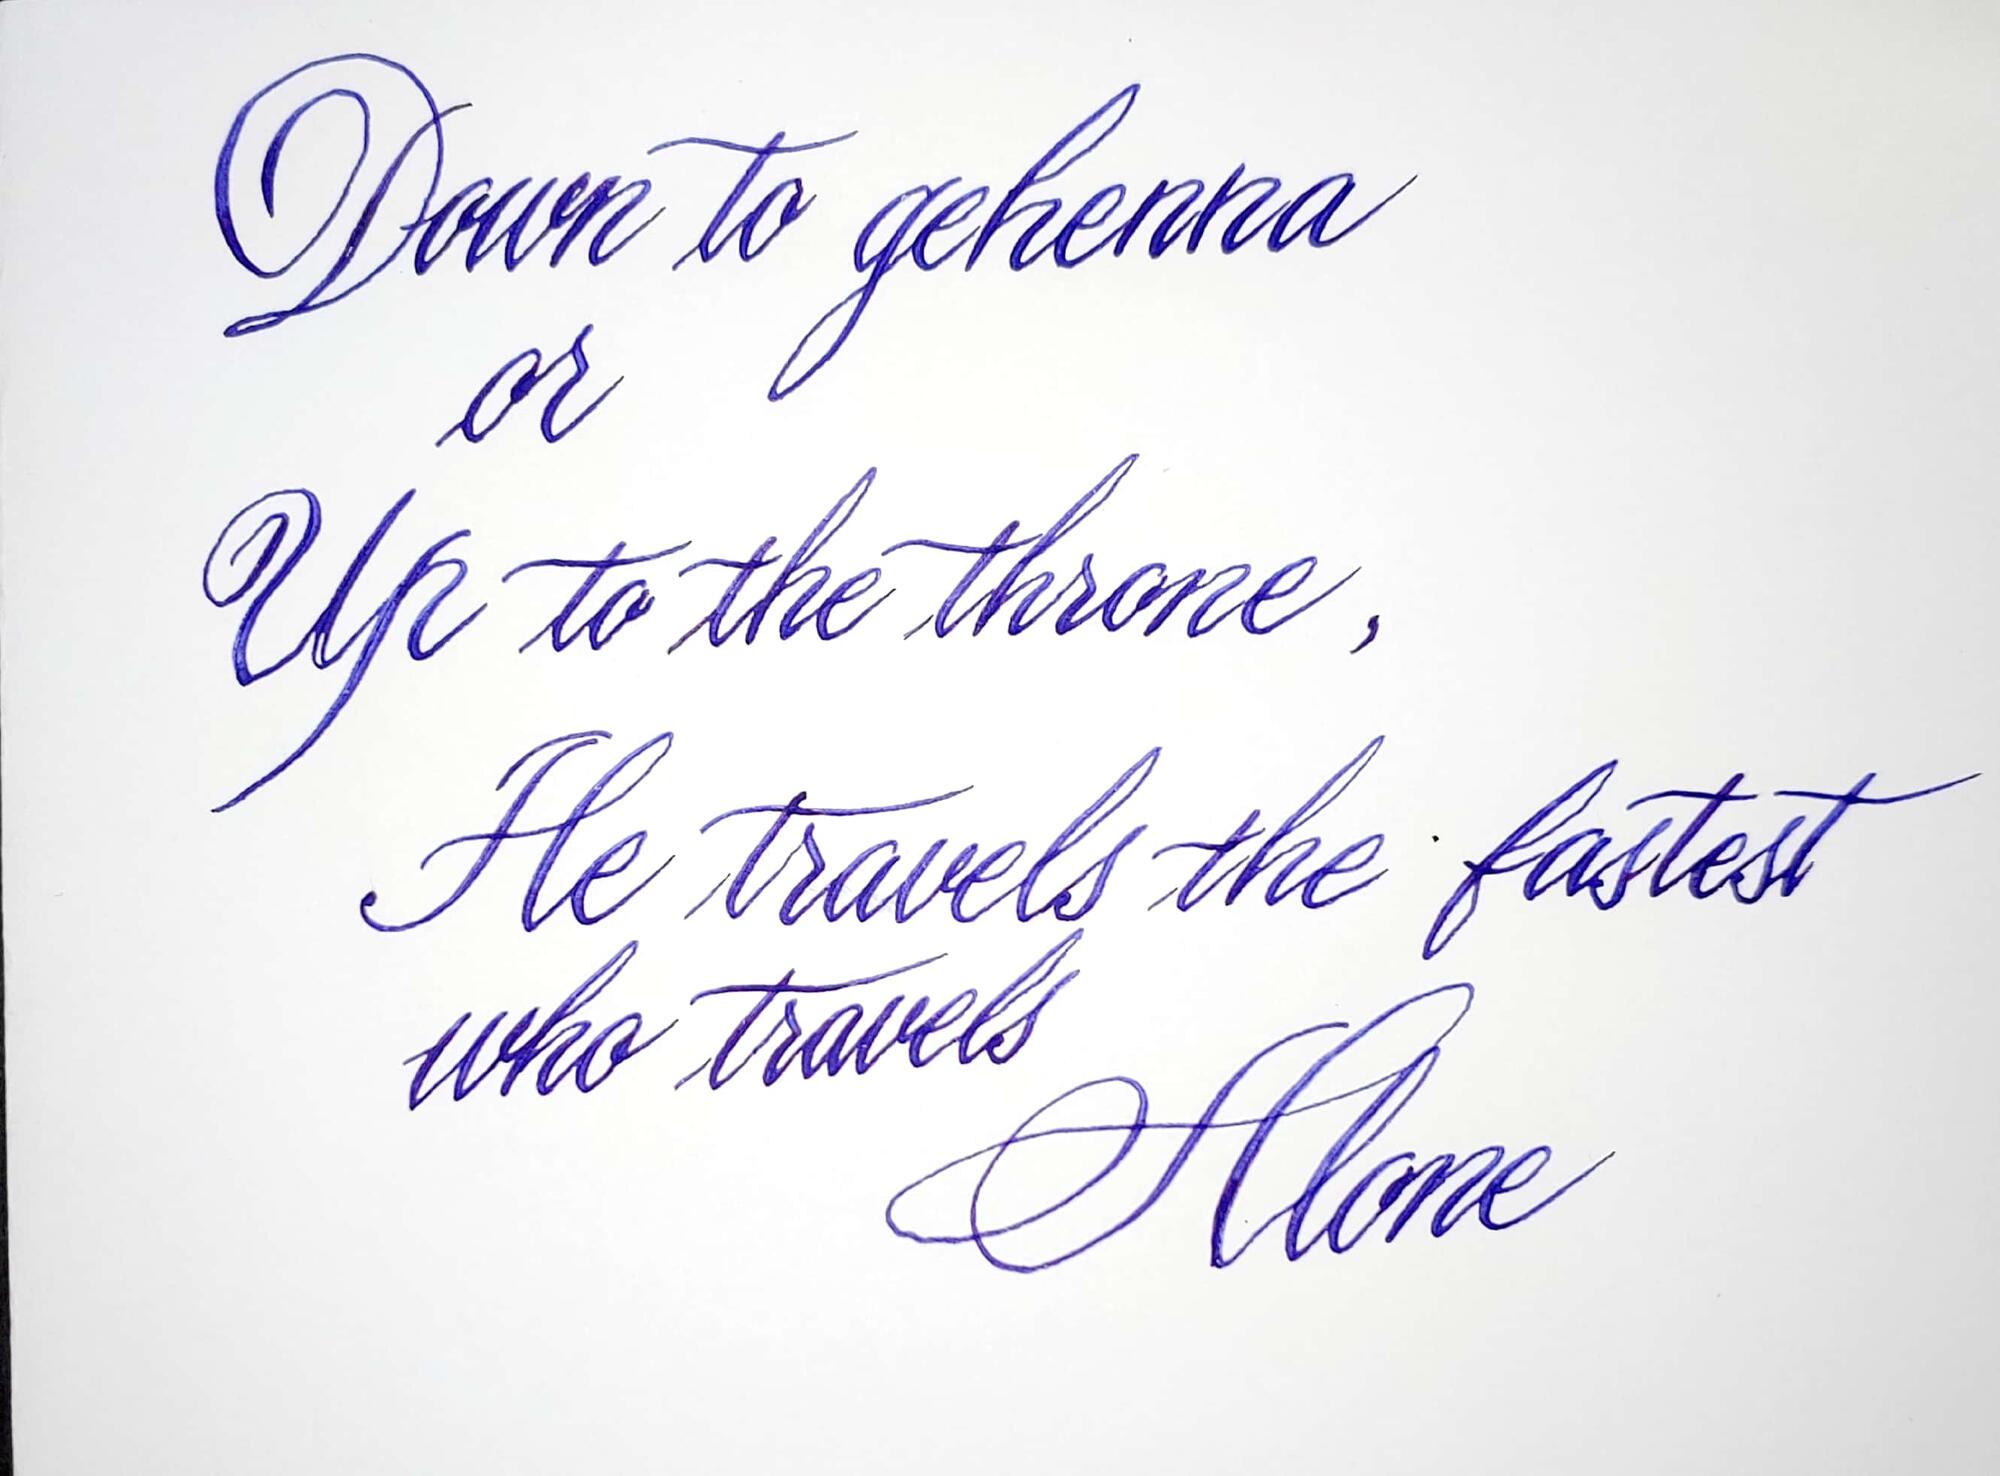 Down to gehenna
or
Up to the throne,
He travels the fastest
who travels
Alone